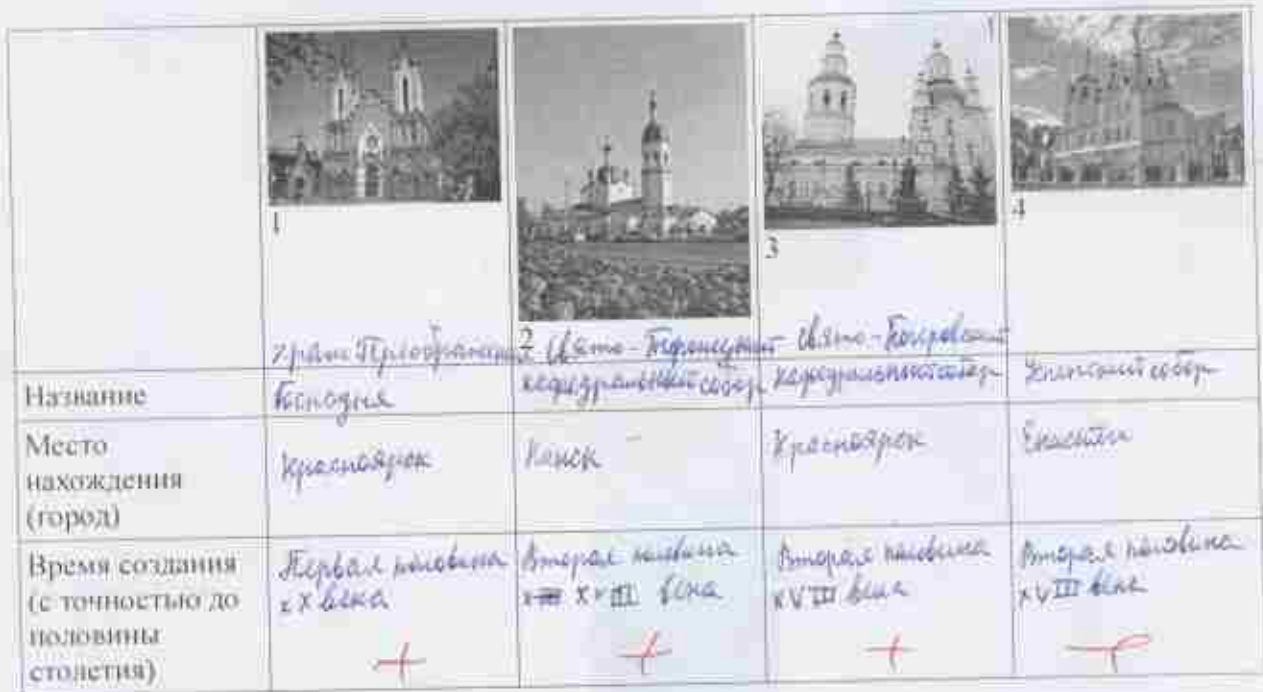 1
2
3
4
Название
Храм Преображения Господня
Свято-Троицкий кафедральный собор
Свято-Покровский кафедральный собор
Успенский собор
Место нахождения (город)
Красноярск
Канск
Красноярск
Енисейск
Время создания (с точностью до половины столетия)
Первая половина XX века
Вторая половина XVIII века
Вторая половина XVIII века
Вторая половина XVIII века